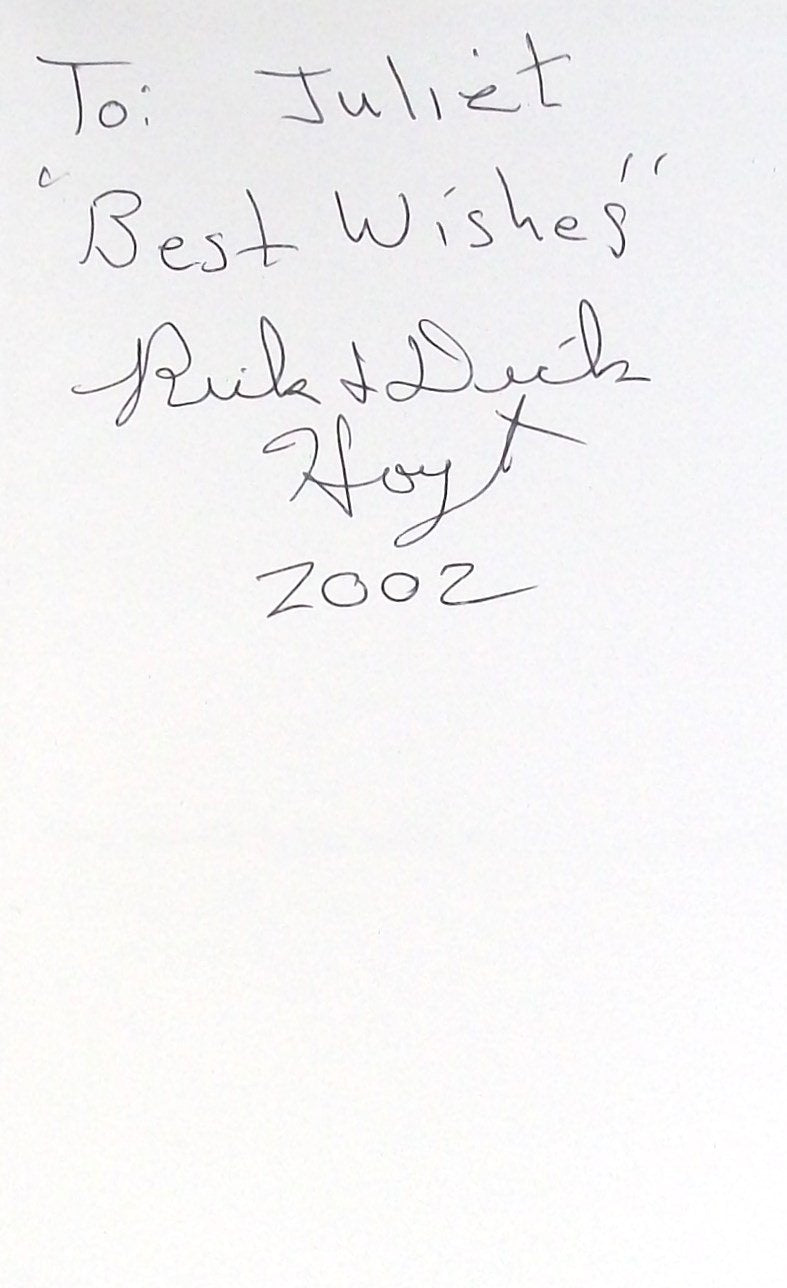 To: Juliet
"Best Wishes"
Rick & Dick
Hoyt
2002